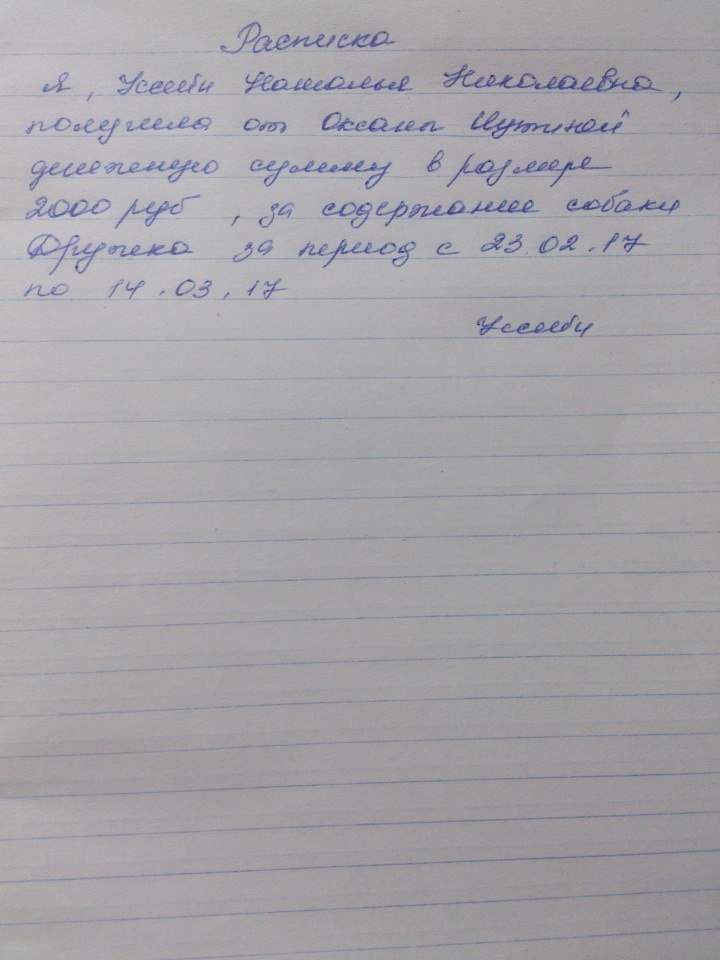 Расписка
Я, Уссеби Наталья Николаевна,
получила от Оксаны
денежную сумму в размере
2000 руб , за содержание собаки
Дружка за период с 23.02.17
по 14.03.17
Уссеби